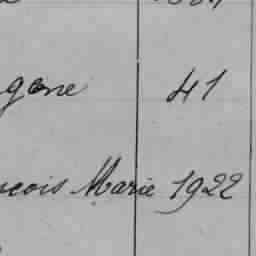 gène 41
ncois Marie 1922